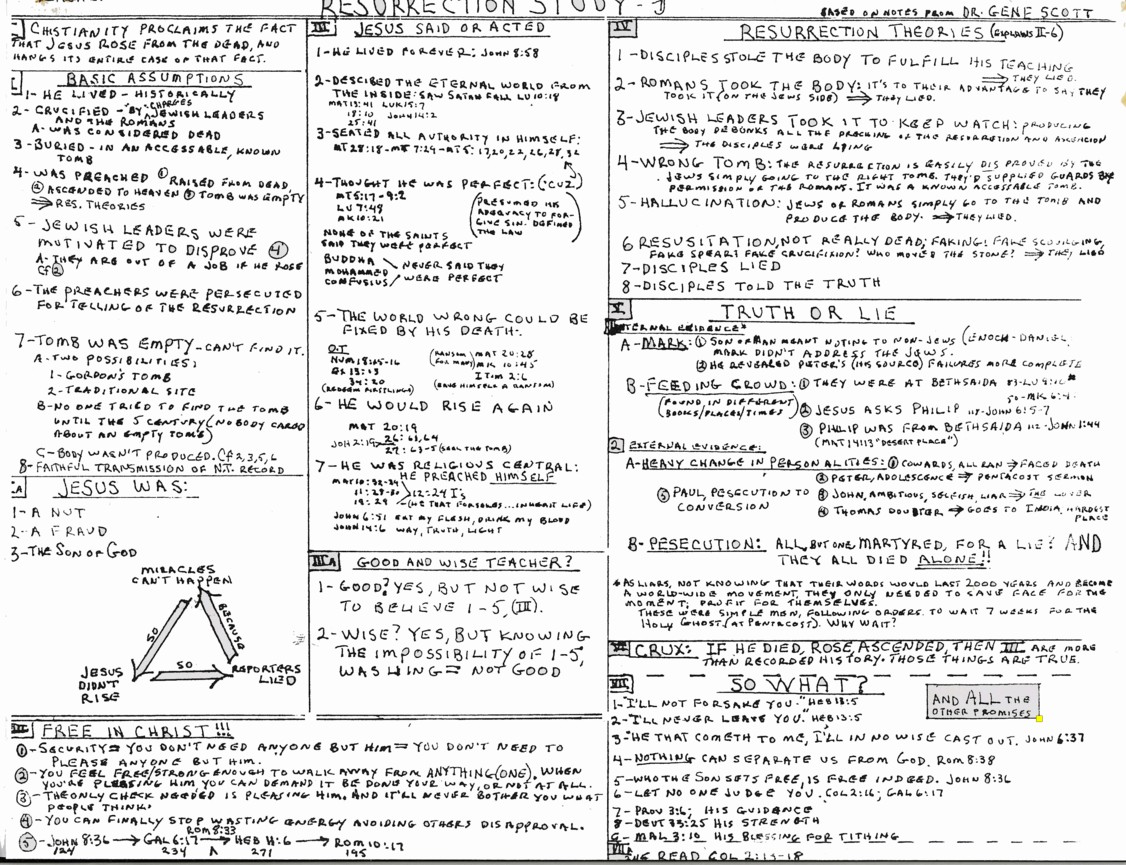 RESURRECTION STUDY-J
BASED ON NOTES FROM DR. GENE SCOTT
CHISTIANITY PROCLAIMS THE FACT
THAT JESUS ROSE FROM THE DEAD, AND
HANGS ITS ENTIRE CASE ON THAT FACT.
BASIC ASSUMPTIONS
1-HE LIVED-HISTORICALLY
CHARGES
2-CRUCIFIED-"BY JEWISH LEADERS
AND THE ROMANS
A-WAS CONSIDERED DEAD
3-BURIED-IN AN ACCESSABLE, KNOWN
TOMB
4-WAS PREACHED ① RAISED FROM DEAD,
② ASCENDED TO HEAVEN ③ TOMB WAS EMPTY
⟹ RES. THEORIES
5-JEWISH LEADERS WERE
MOTIVATED TO DISPROVE ④
A-THEY ARE OUT OF A JOB IF HE ROSE
CF②
6-THE PREACHERS WERE PERSECUTED
FOR TELLING OF THE RESURRECTION
7-TOMB WAS EMPTY-CAN'T FIND IT.
A-TWO POSSIBILITIES:
1-GORDON'S TOMB
2-TRADITIONAL SITE
B-NO ONE TRIED TO FIND THE TOMB
UNTIL THE 5 CENTURY (NO BODY CARED
ABOUT AN EMPTY TOMB)
C-BODY WASN'T PRODUCED. CF 2,3,5,6
8-FAITHFUL TRANSMISSION OF N.T. RECORD
JESUS WAS:
1-A NUT
2-A FRAUD
3-THE SON OF GOD
MIRACLES
CAN'T HAPPEN
SO
BECAUSE
SO
JESUS
DIDN'T
RISE
REPORTERS
LIED
III JESUS SAID OR ACTED
1-HE LIVED FOREVER: JOHN 8:58
2-DESCIBED THE ETERNAL WORLD FROM
THE INSIDE: SAW SATAN FALL LU 10:18
MAT 13:41 LUK 15:7
18:10 JOHN 14:2
25:41
3-SEATED ALL AUTHORITY IN HIMSELF:
MT 28:18-MT 7:29-MT 5: 17,20,22,26,28,32
4-THOUGHT HE WAS PERFECT: (:CUZ)
MT 5:17-9:2
LU 7:48
MK 10:21
(PRESUMED HIS
ADEQUACY TO FOR-
GIVE SIN. DEFINED
THE LAW)
NONE OF THE SAINTS
SAID THEY WERE PERFECT
BUDDHA
MOHAMMED
CONFUSIUS
NEVER SAID THEY
WERE PERFECT
5-THE WORLD WRONG COULD BE
FIXED BY HIS DEATH:
O.T
NUM 18:15-16
EX 13:13
34:20
(REDEEM FIRSTLINGS)
(RANSOM FOR MANY) MAT 20:28
MK 10:45
I TIM 2:6
(GAVE HIMSELF A RANSOM)
6-HE WOULD RISE AGAIN
MAT 20:19
JOH 2:19 26:63,64
27:63-5 (SEAL THE TOMB)
7-HE WAS RELIGIOUS CENTRAL:
HE PREACHED HIMSELF
MAT 10:32-39
11:28-30 12:24 I's
19:29 -(HE THAT FORSAKES...INHERIT LIFE)
JOHN 6:51 EAT MY FLESH, DRINK MY BLOOD
JOHN 14:6 WAY, TRUTH, LIGHT
III A GOOD AND WISE TEACHER?
1-GOOD? YES, BUT NOT WISE
TO BELIEVE 1-5, (III).
2-WISE? YES, BUT KNOWING
THE IMPOSSIBILITY OF 1-5,
WAS LYING= NOT GOOD
IV RESURRECTION THEORIES (EXPLAINS II-6)
1-DISCIPLES STOLE THE BODY TO FULFILL HIS TEACHING
⟹ THEY LIED.
2-ROMANS TOOK THE BODY: IT'S TO THEIR ADVANTAGE TO SAY THEY
TOOK IT (ON THE JEWS SIDE) ⟹ THEY LIED.
3-JEWISH LEADERS TOOK IT TO KEEP WATCH: PRODUCING
THE BODY DEBUNKS ALL THE PRECHING OF THE RESURRETION AND ASCENCION
⟹ THE DISCIPLES WERE LYING
4-WRONG TOMB: THE RESURRECTION IS EASILY DISPROVED BY THE
JEWS SIMPLY GOING TO THE RIGHT TOMB. THEY'D SUPPLIED GUARDS BY
PERMISSION OF THE ROMANS. IT WAS A KNOWN ACCESSABLE TOMB.
5-HALLUCINATION: JEWS OR ROMANS SIMPLY GO TO THE TOMB AND
PRODUCE THE BODY. ⟹ THEY LIED.
6 RESUSITATION, NOT REALLY DEAD, FAKING! FAKE SCOURGING,
FAKE SPEAR! FAKE CRUCIFIXION! WHO MOVED THE STONE? ⟹ THEY LIED
7-DISCIPLES LIED
8-DISCIPLES TOLD THE TRUTH
V TRUTH OR LIE
INTERNAL EVIDENCE*
A-MARK: ① SON OF MAN MEANT NOTING TO NON-JEWS (ENOCH-DANIEL,
MARK DIDN'T ADDRESS THE JEWS.
② HE REVEALED PETER'S (HIS SOURCE) FAILURES MORE COMPLETE
B-FEEDING CROWD: ① THEY WERE AT BETHSAIDA 83-LU 9:10*
50-MK 6:4-
(FOUND, IN DIFFERENT
BOOKS/PLACES/TIMES)
② JESUS ASKS PHILIP 117-JOHN 6:5-7
③ PHILIP WAS FROM BETHSAIDA 112-JOHN 1:44
(MAT 14:13 "DESERT PLACE")
2 EXTERNAL EVIDENCE:
A-HEAVY CHANGE IN PERSONALITIES: ① COWARDS, ALL RAN ⟹ FACED DEATH
② PETER, ADOLESENCE ⟹ PENTACOST SERMON
⑤ PAUL, PESECUTION TO
CONVERSION
③ JOHN, AMBITIOUS, SELFISH, LIAR ⟹ THE LOVER
④ THOMAS DOUBTER ⟹ GOES TO INDIA, HARDEST
PLACE
B-PESECUTION: ALL, BUT ONE MARTYRED, FOR A LIE? AND
THEY ALL DIED ALONE!!
*AS LIARS, NOT KNOWING THAT THEIR WORDS WOULD LAST 2000 YEARS AND BECOME
A WORLD-WIDE MOVEMENT, THEY ONLY NEEDED TO SAVE FACE FOR THE
MOMENT; PROFIT FOR THEMSELVES.
THESE WERE SIMPLE MEN, FOLLOWING ORDERS. TO WAIT 7 WEEKS FOR THE
HOLY GHOST (AT PENTACOST). WHY WAIT?
VI CRUX: IF HE DIED, ROSE, ASCENDED, THEN III ARE MORE
THAN RECORDED HISTORY. THOSE THINGS ARE TRUE.
VII SO WHAT?
AND ALL THE
OTHER PROMISES
1-"I'LL NOT FORSAKE YOU." HEB 13:5
2-"I'LL NEVER LEAVE YOU." HEB 13:5
3-"HE THAT COMETH TO ME, I'LL IN NO WISE CAST OUT. JOHN 6:37
4-NOTHING CAN SEPARATE US FROM GOD. ROM 8:38
5-WHO THE SON SETS FREE, IS FREE INDEED. JOHN 8:36
6-LET NO ONE JUDGE YOU. COL 2:16; GAL 6:17
7-PROV 3:6; HIS GUIDANCE
8-DEUT 33:25 HIS STRENGTH
9-MAL 3:10 HIS BLESSING FOR TITHING
THE READ COL 2:13-18
FREE IN CHRIST!!!
①-SECURITY= YOU DON'T NEED ANYONE BUT HIM= YOU DON'T NEED TO
PLEASE ANYONE BUT HIM.
②-YOU FEEL FREE/STRONG ENOUGH TO WALK AWAY FROM ANYTHING(ONE). WHEN
YOU'RE PLEASING HIM YOU CAN DEMAND IT BE DONE YOUR WAY, OR NOT AT ALL.
③-THE ONLY CHECK NEEDED IS PLEASING HIM. AND IT'LL NEVER BOTHER YOU WHAT
PEOPLE THINK.
④-YOU CAN FINALLY STOP WASTING ENERGY AVOIDING OTHERS DISAPPROVAL.
ROM 8:33
⑤-JOHN 8:36 → GAL 6:17 → HEB H:6 → ROM 10:17
124 234 A 271 195